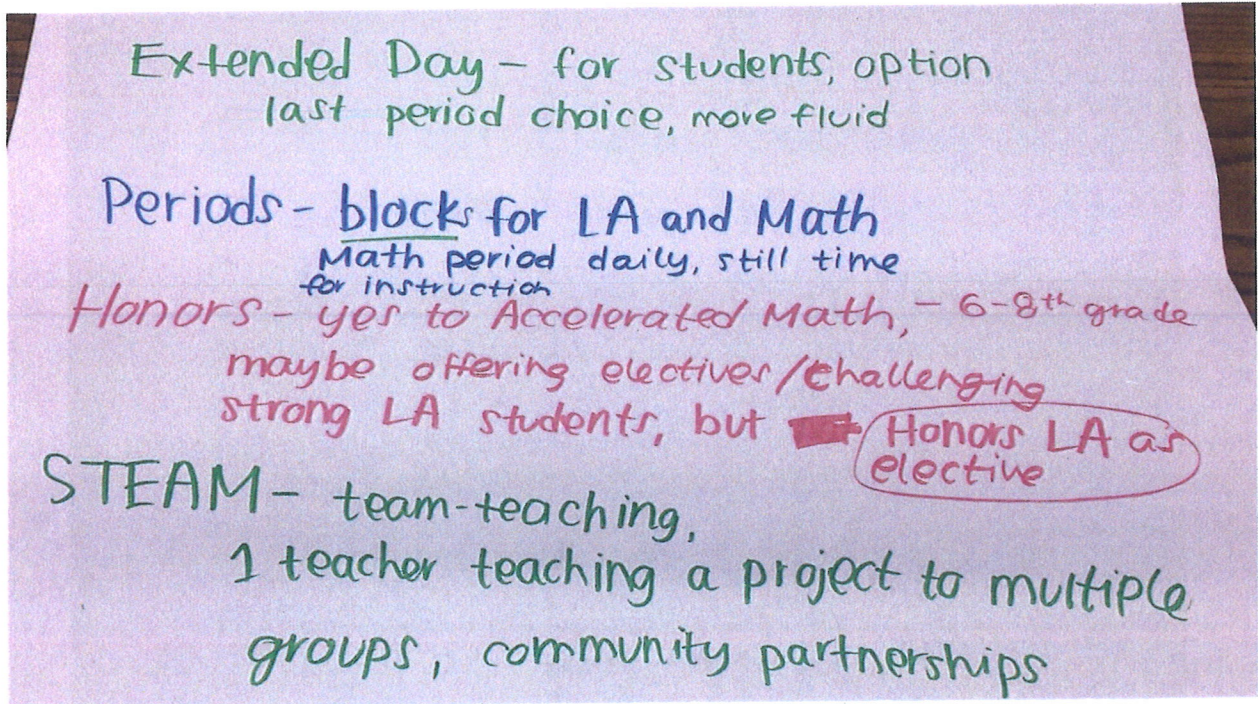 Extended Day - for students, option
last period choice, more fluid
Periods - blocks for LA and Math
Math period daily, still time
for instruction
Honors - yes to Accelerated Math, - 6-8th grade
maybe offering electives/challenging
strong LA students, but Honors LA as
elective
STEAM - team-teaching,
1 teacher teaching a project to multiple
groups, community partnerships